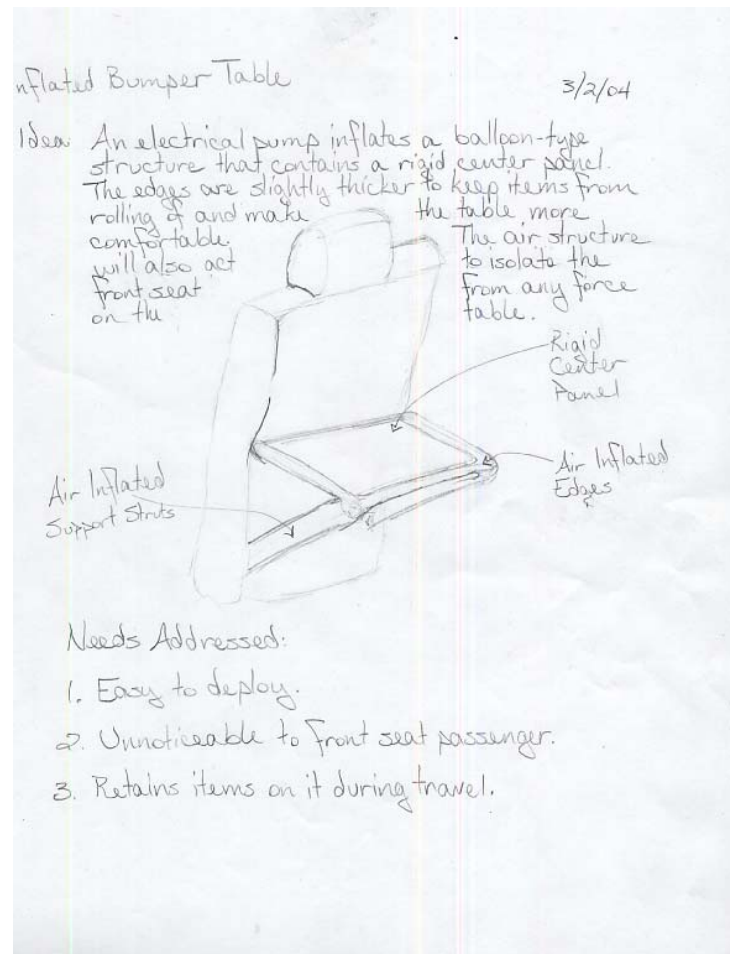 nflated Bumper Table
3/2/04
Idea: An electrical pump inflates a balloon-type
structure that contains a rigid center panel.
The edges are slightly thicker to keep items from
rolling of and make the table more
comfortable. The air structure
will also act to isolate the
front seat from any force
on the table.
Rigid
Center
Panel
Air Inflated
Edges
Air Inflated
Support Struts
Needs Addressed:
1. Easy to deploy.
2. Unnoticeable to front seat passenger.
3. Retains items on it during travel.